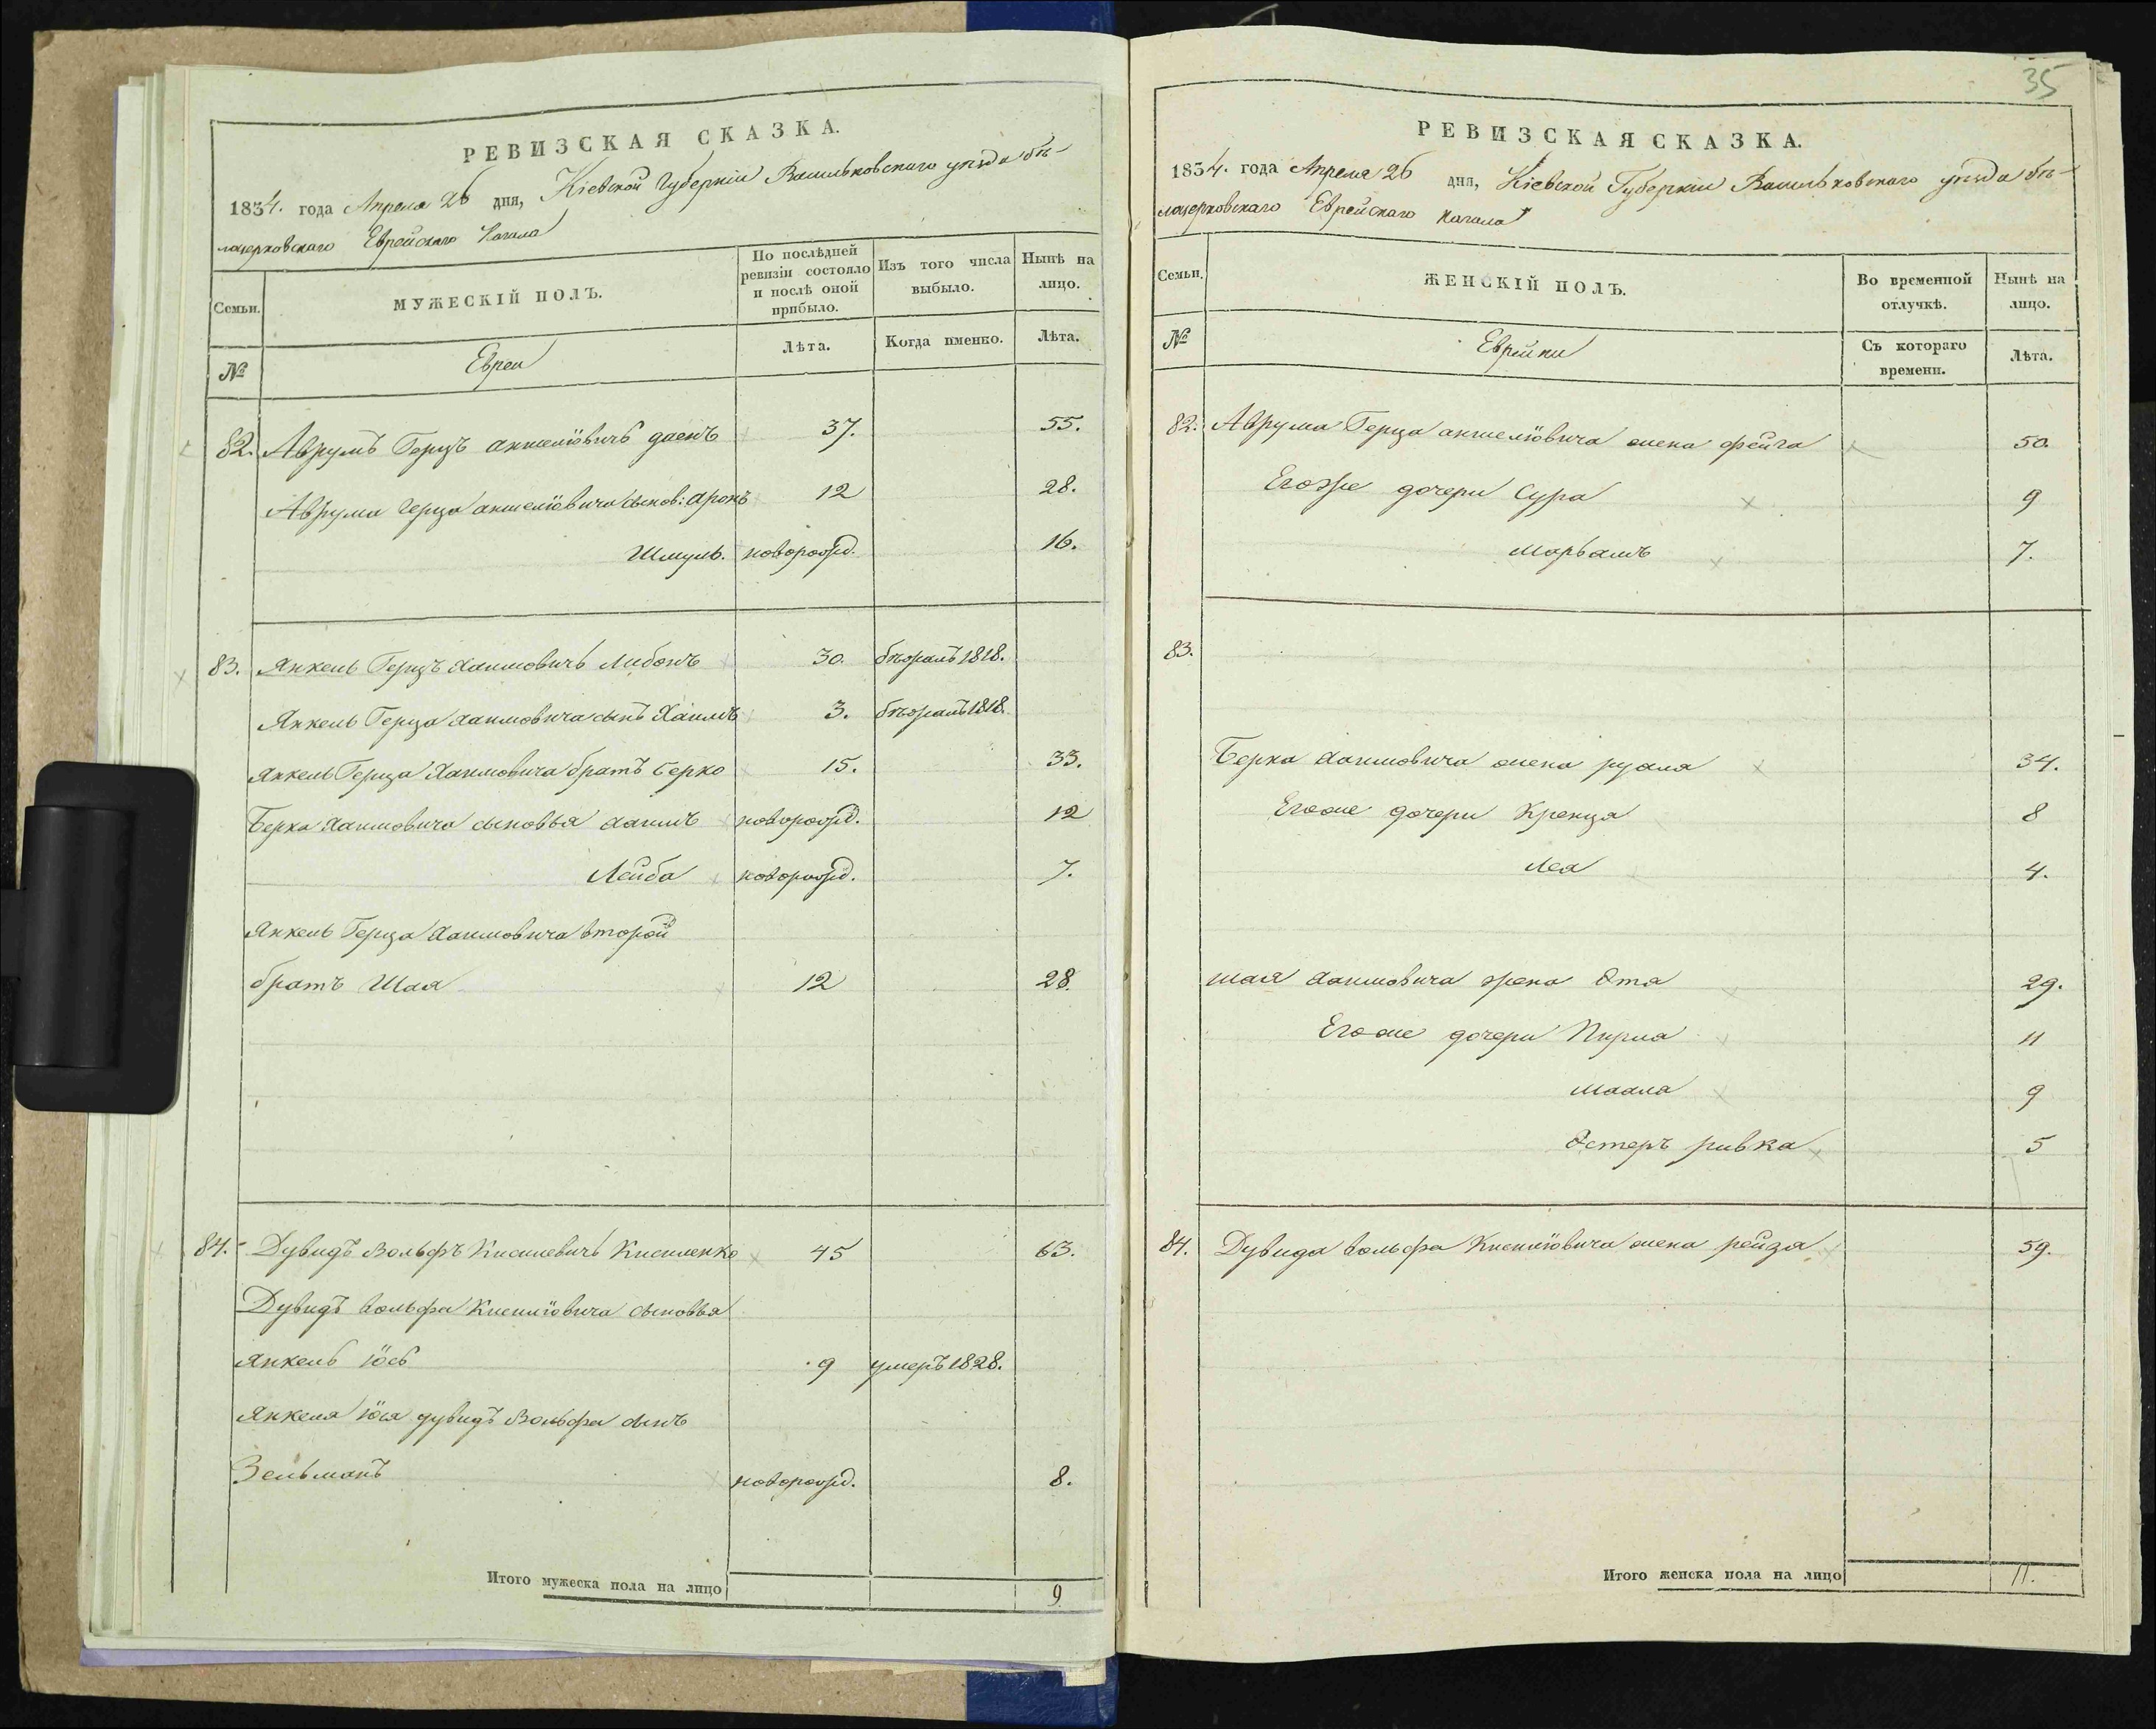 РЕВИЗСКАЯ СКАЗКА.
1834. года Апреля 26 дня, Кіевской Губерніи Васильковскаго уезда бѣ-
лоцерковскаго Еврейскаго Кагала
Семьи.
МУЖЕСКІЙ ПОЛЪ.
По послѣдней ревизіи состояло и послѣ оной прибыло.
Изъ того числа выбыло.
Нынѣ на лицо.
№
Евреи
Лѣта.
Когда именно.
Лѣта.
82. Аврумъ Герцъ аншелiовичъ даенъ 37. 55.
Аврума герца аншелiовича сынов: аронъ 12 28.
Шмуль. новорожд. 16.
83. Янкель Герцъ Хаимовичъ Либонъ 30. бѣжалъ 1818.
Янкель Герца Хаимовича сынъ Хаимъ 3. бѣжалъ 1818.
Янкель Герца Хаимовича братъ Берко 15. 33.
Берка Хаимовича сыновья хаимъ новорожд. 12
Лейба новорожд. 7.
Янкель Герца Хаимовича второй
братъ Шая 12 28.
84. Дувидъ Вольфъ Кисилевичъ Кисиленко 45 63.
Дувидъ вольфа Кисилiовича сыновья
Янкель iось 9 умеръ 1828.
Янкеля iося дувидъ Вольфа сынъ
Зельманъ новорожд. 8.
Итого мужеска пола на лицо 9
35
РЕВИЗСКАЯ СКАЗКА.
1834. года Апреля 26 дня, Кіевской Губерніи Васильковскаго уезда бѣ-
лоцерковскаго Еврейскаго кагала
Семьи.
ЖЕНСКІЙ ПОЛЪ.
Во временной отлучкѣ.
Нынѣ на лицо.
№
Еврейки
Съ котораго времени.
Лѣта.
82. Аврума Герца аншелiовича жена фейга 50.
Егоже дочери Сура 9
марьамъ 7.
83.
Берка Хаимовича жена рухля 34.
Егоже дочери Кренця 8
Леа 4.
шая Хаимовича жена Эта 29.
Егоже дочери Пирла 11
махла 9
Эстеръ ривка 5
84. Дувида вольфа Кисилiовича жена рейзя 59.
Итого женска пола на лицо 11.